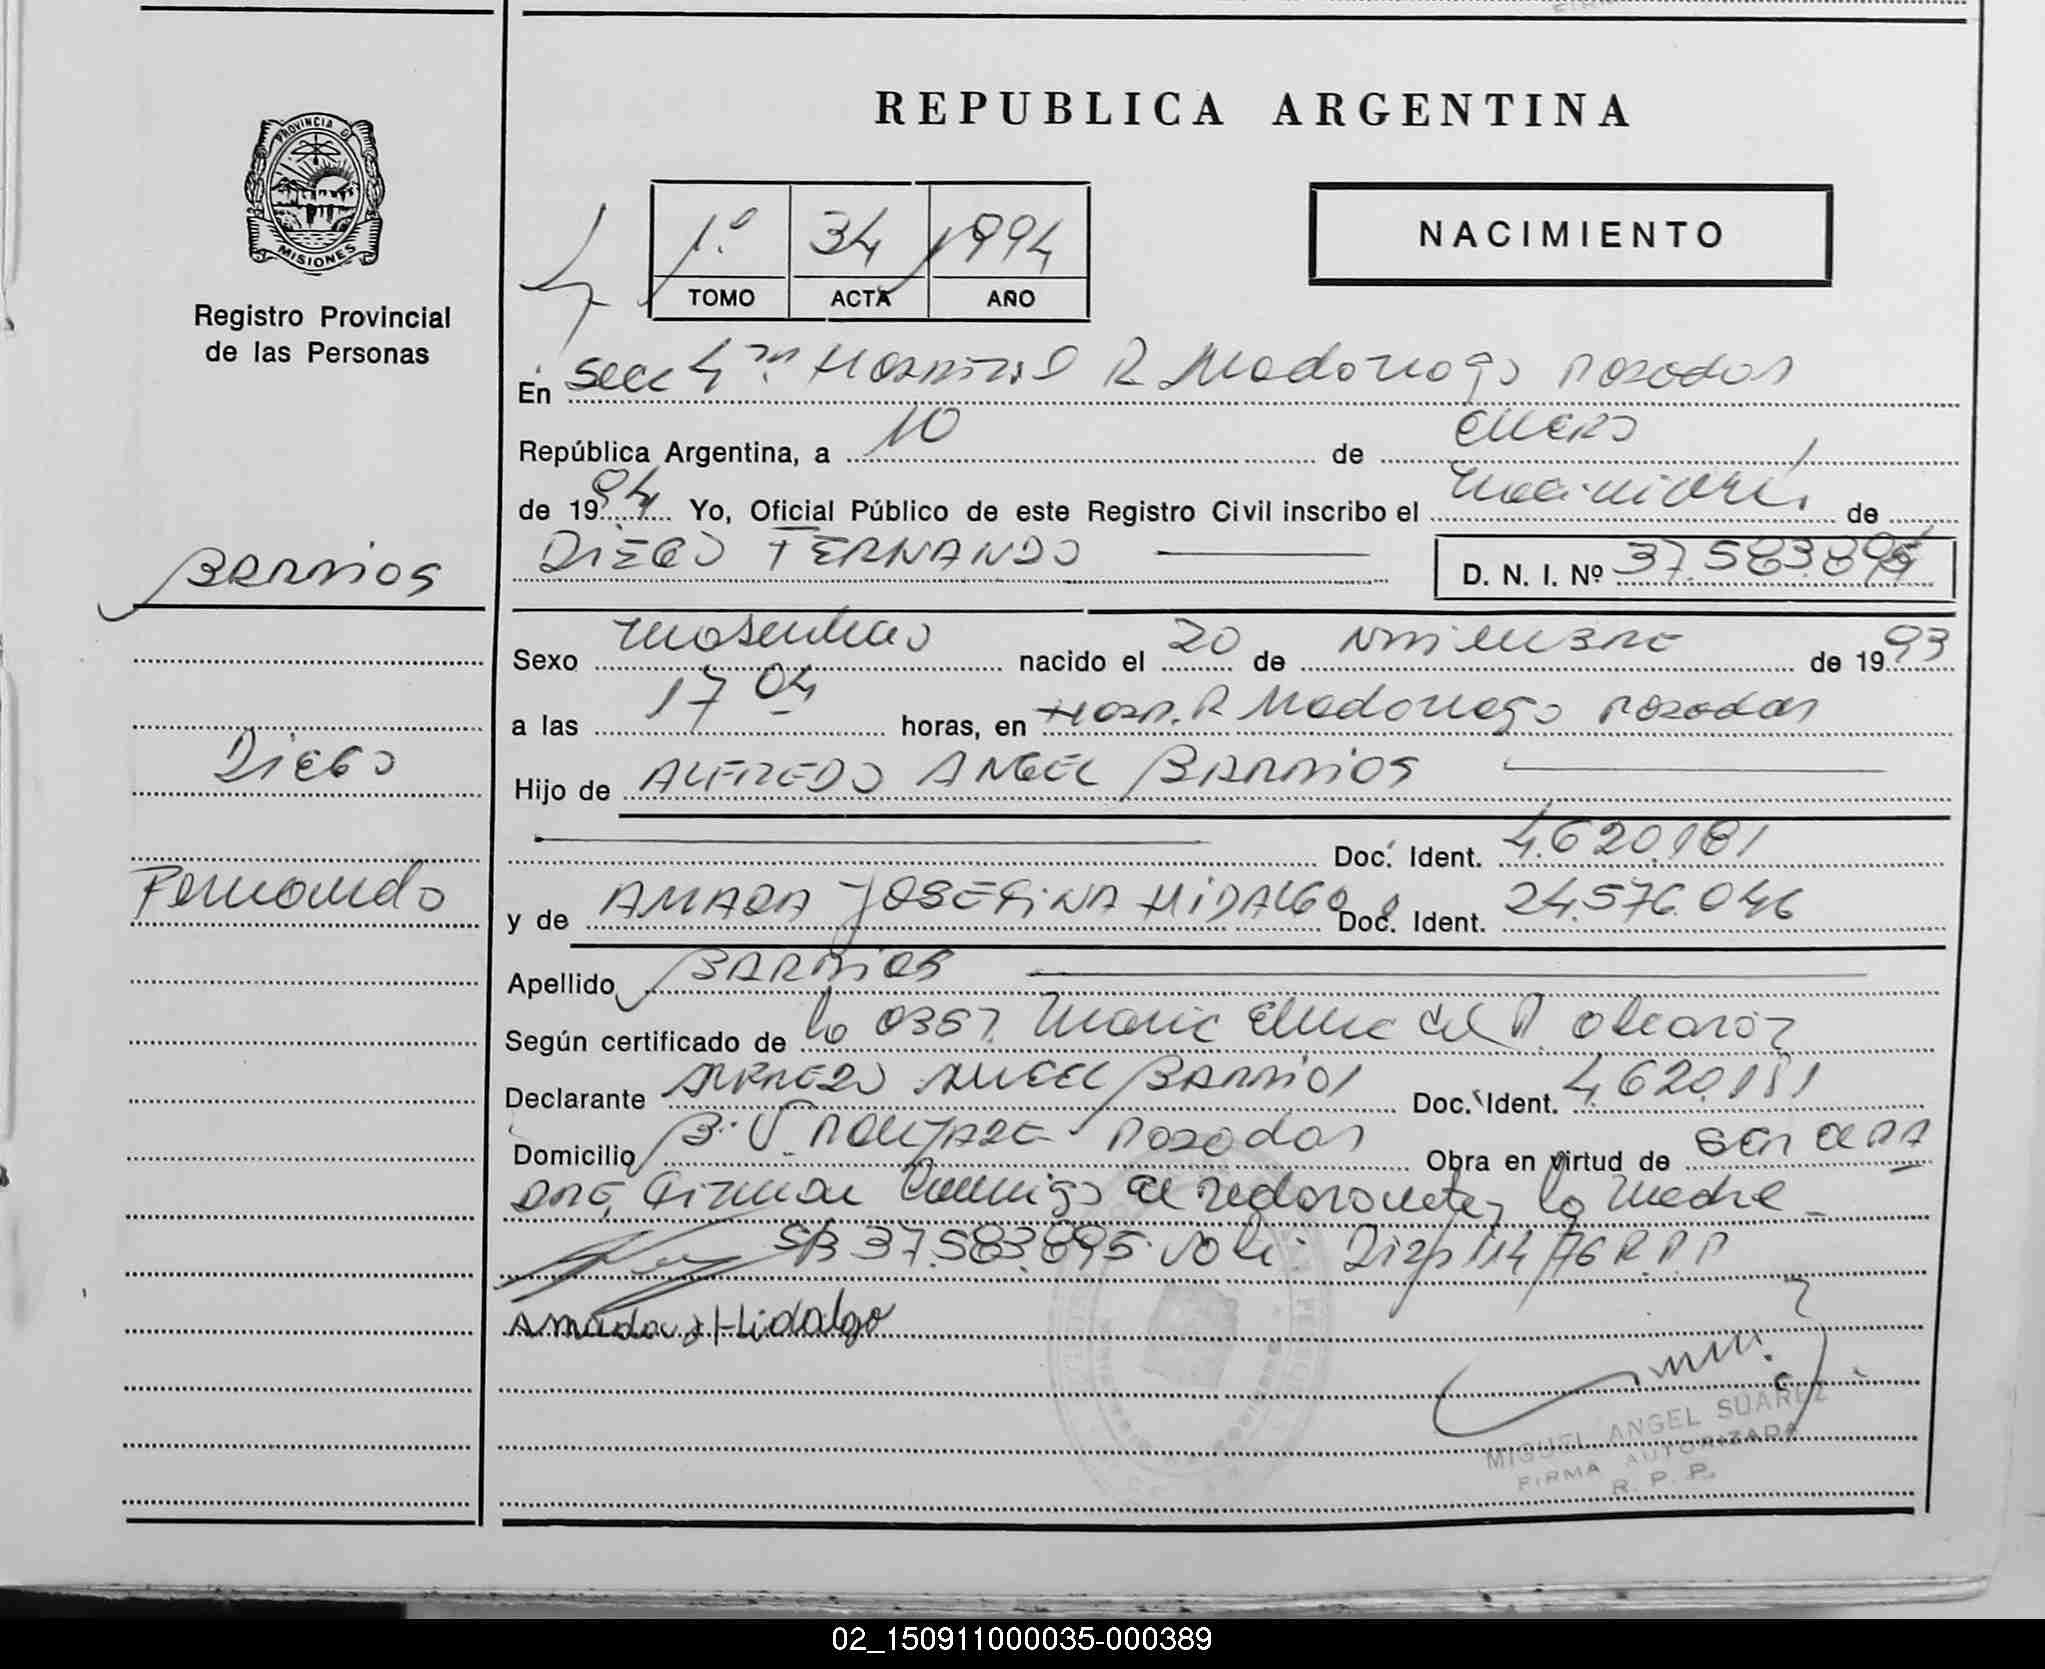 REPUBLICA ARGENTINA
PROVINCIA D
MISIONES
Registro Provincial
de las Personas
1º 34 1994
TOMO ACTA AÑO
NACIMIENTO
En Secc 4ta Hospital R Madariaga Posadas
República Argentina, a 10 de enero
de 1994 Yo, Oficial Público de este Registro Civil inscribo el nacimiento de
DIEGO FERNANDO D. N. I. Nº 37.583.895
Barrios
Sexo masculino nacido el 20 de noviembre de 1993
a las 17 04 horas, en Hosp. R Madariaga Posadas
Diego
Hijo de ALFREDO ANGEL BARRIOS
Doc. Ident. 4.620.181
Fernando
y de AMADA JOSEFINA HIDALGO Doc. Ident. 24.576.046
Apellido BARRIOS
Según certificado de la Obst. Maria del
Declarante ALFREDO ANGEL BARRIOS Doc. Ident. 4.620.181
Domicilio B. Posadas Obra en virtud de ser el pa
dre, Firman conmigo el declarante y la madre
S/B 37.583.895 vale Disp 114/76 R.P.P
Amada J Hidalgo
MIGUEL ANGEL SUAREZ
FIRMA AUTORIZADA
R. P. P.
02_150911000035-000389